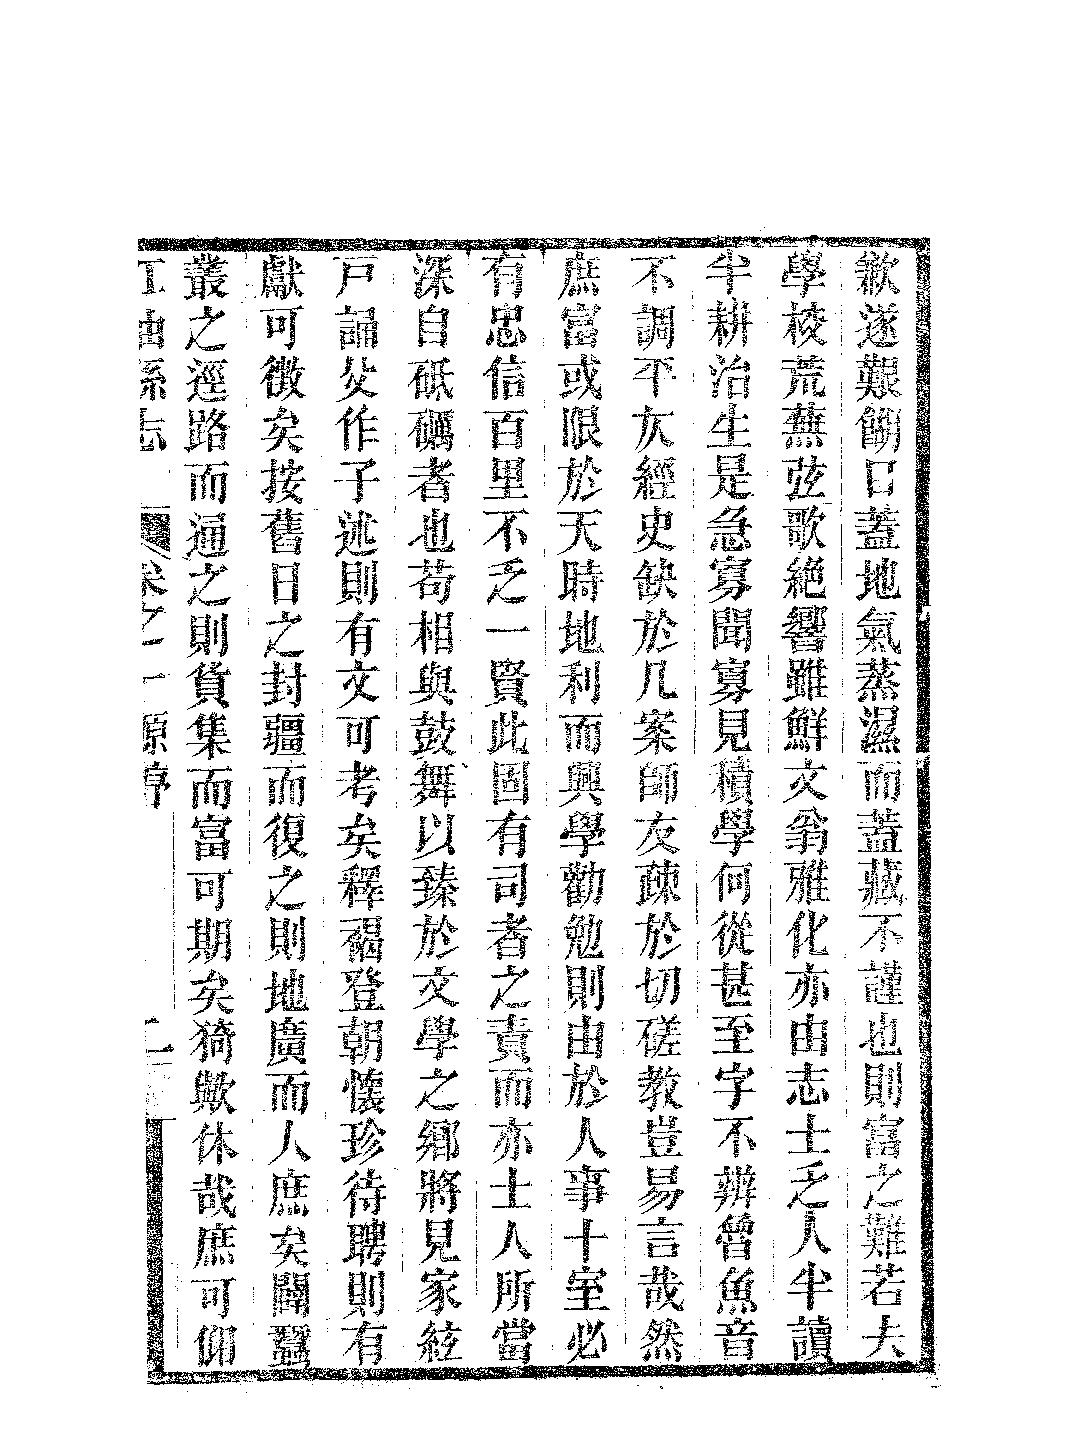 歉遂艱餬口蓋地氣蒸濕而蓋藏不謹也則富之難若夫
學校荒蕪弦歌絶響雖鮮文翁雅化亦由志士乏人半讀
半耕治生是急寡聞寡見積學何從甚至字不辨魯魚音
不調平仄經史缺於几案師友疎於切磋教豈易言哉然
庶富或限於天時地利而興學勸勉則由於人事十室必
有忠信百里不乏一賢此固有司者之責而亦士人所當
深自砥礪者也苟相與鼓舞以臻於文學之鄉將見家絃
戸誦父作子述則有文可考矣釋褐登朝懷珍待聘則有
獻可徵矣按舊日之封疆而復之則地廣而人庶矣闢蠶
叢之逕路而通之則貨集而富可期矣猗歟休哉庶可仰
江油縣志 卷之一 原序 二